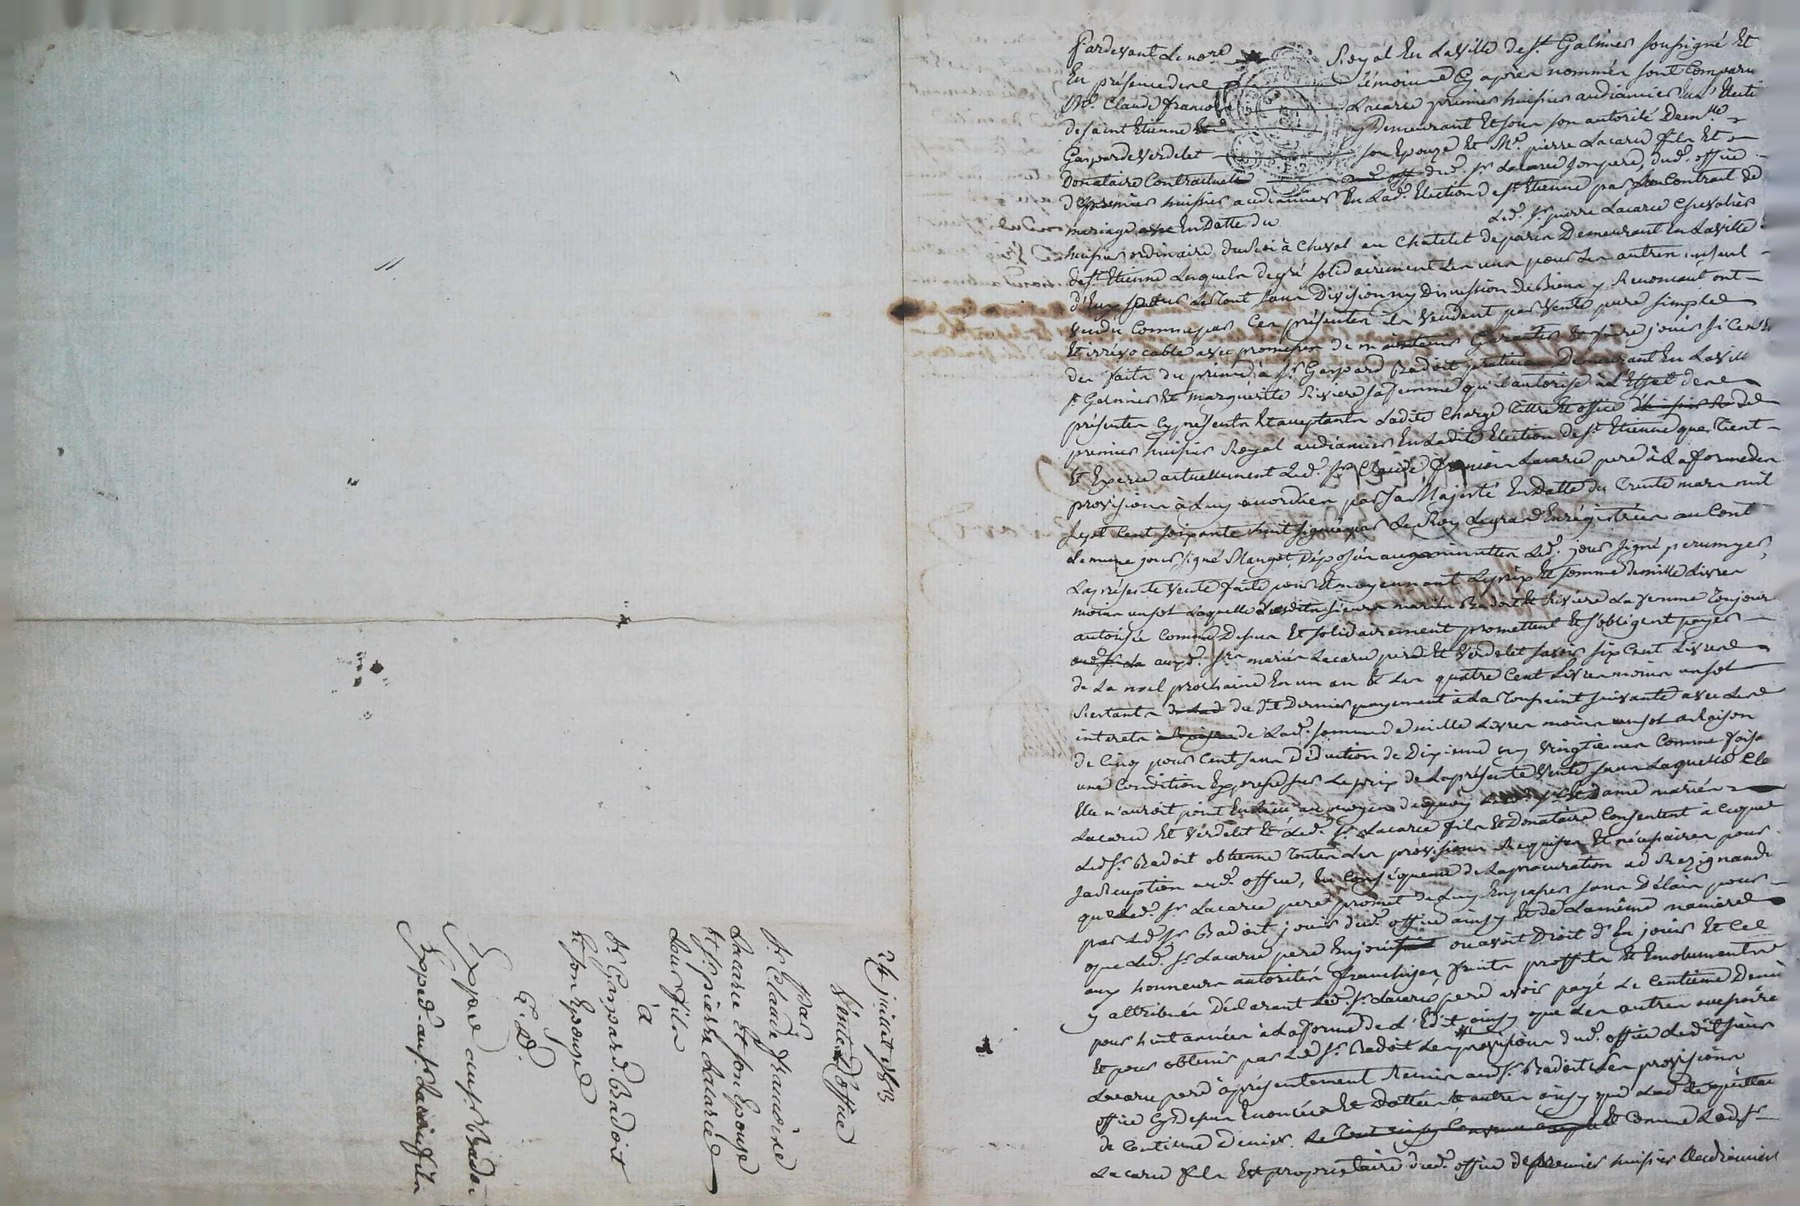 Pardevant Le nore Royal En La Ville de st. Galmier soussigné Et
En présence des témoins Cy après nommés sont Comparu
Me. Claude françois Lacarie premier huissier audiancier En L'Election
de saint Etienne y Demeurant Et sous son autorité Demlle
Gasparde Verdelet son Epouze Et Me. pierre Lacarie fils Et
Donataire Contractuelle dud. sr. Lacarie son pere, dud. office
de premier huissier audiancier En Lad. Election de st. Etienne par son Contrat de
mariage En Datte du Led. sr. pierre Lacarie Chevalier
huissier ordinaire du Roi à Cheval au Chatelet de paris Demeurant En La Ville
de st. Etienne Lesquels de gré solidairement L'un pour Les autres un seul
d'Eux pour Le Tout sans Division ny Discussion de Biens y Renoncant ont
Vendu Comme par Ces présentes ils Vendent par Vente pure simple
Et irrévocable avec promesses de maintenir Garantir Et faire jouir si Ce n'est
des faits du prince, a sr. Gaspard Badoit Demeurant En La Ville
st. Galmier Et Marguerite Riviere sa femme qu'il autorise a L'Effet des
présentes Cy présents Et acceptants Ladite Charge Tittre Et office de
premier huissier Royal audiancier En Ladite Election de st. Etienne que Tient
Et Exerce actuellement Led. sr. Claude françois Lacarie pere à La forme des
provisions à Luy accordées par sa Majesté En Datte du Trente mars mil
sept Cent soixante huit signé par Le Roy Legrand Enregistrées au Cont
Le même jour signé Mauget, Déposées aux minuttes Led. jour signé
La présente Vente faite pour Et moyennant Le prix Et somme de mille Livres
moins un sol Laquelle Lesdits sieurs mariés Badoit Et Riviere La femme Toujours
autorisée Comme Dessus Et solidairement promettent Et s'obligent payer
auxd. srs mariés Lacarie pere Et Verdelet savoir six Cent Livres
de La noel prochaine En un an Et Les quatre Cent Livres moins un sol
Restants du dit Dernier payement a La Toussaint suivante avec Les
interets de Lad. somme de mille Livres moins un sol a Raison
de Cinq pour Cent sans Déduction de Dixieme ny Vingtiemes Comme
une Condition Expresse sur Le prix de La présente Vente sans Laquelle
Elle n'auroit point En Lieu au moyen de quoy Lesd. sr. Et Dame mariés
Lacarie Et Verdelet Et Led. sr. Lacarie fils Et Donataire Consentent à Ce que
Led. sr. Badoit obtienne Toutes Les provisions Requises Et nécessaires pour
sa Réception aud. office, En Conséquence de La procuration ad Resignandum
que Led. sr. Lacarie pere promet de Luy En passer sans Délais pour
par Led. sr. Badoit jouir dud. office ainsy Et de La même maniere
que Led. sr. Lacarie pere En jouissait ou avoit Droit d'En jouir Et Ce
aux honneurs autorités franchises, fruits proffits Et Emoluments
y attribués Déclarant Led. sr. Lacarie pere avoir payé Le Centieme Denier
pour huit années a La forme de L'Edit ainsy que Les autres
Et pour obtenir par Led. sr. Badoit Les provisions dud. office Led. sieur
Lacarie pere à présentement Remis aud. sr. Badoit Les provisions
office Cy dessus Enoncées Et Dattées Et autres ainsy que Lad.
de Centieme Denier. Et Comme Led. sr.
Lacarie fils Est propriétaire dud. office de premier huissier Audiancier
24 juillet
Vente D'office
Par
sr. Claude francoise
Lacarie Et son Epouse
Et sr. pierre Lacarie
Leur fils
à
sr. Gaspard Badoit
Et son Epouze
G. D.
Exped. au sr. Badoit
Exped. au sr. Lacarie fils